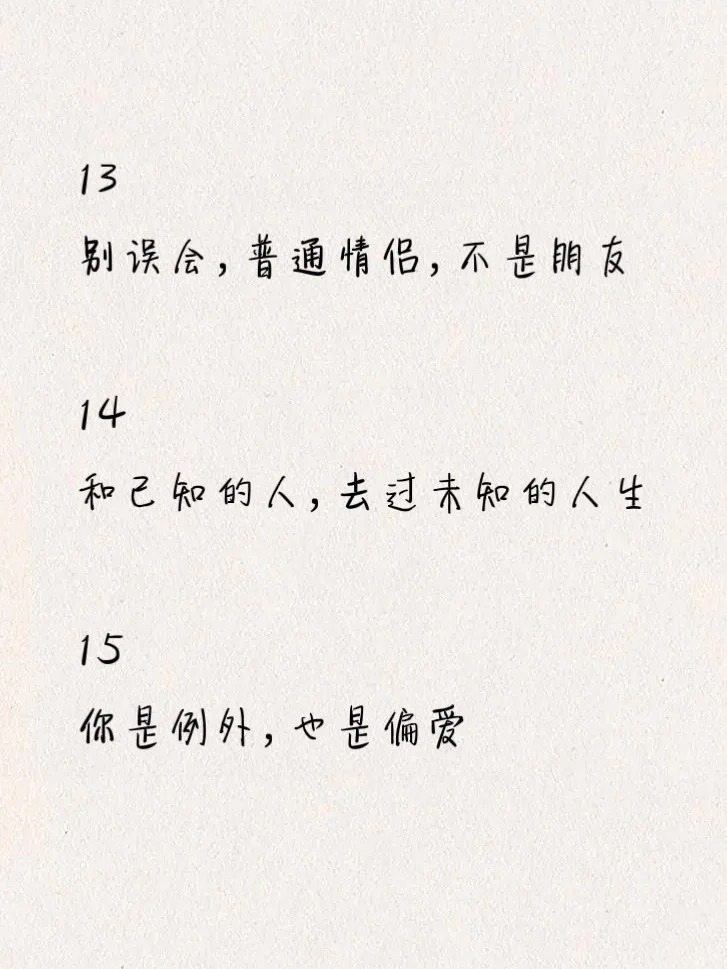 13
别误会,普通情侣,不是朋友
14
和已知的人,去过未知的人生
15
你是例外,也是偏爱